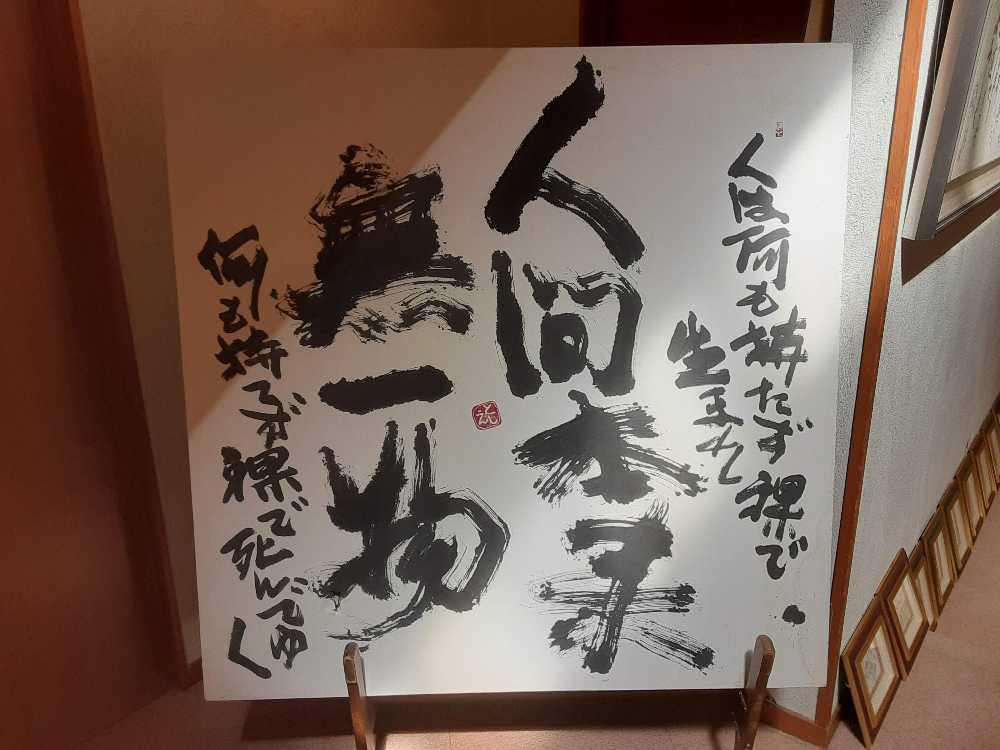 人は何も持たず裸で
生まれ
人間本来
無一物
何も持てず裸で死んでゆく